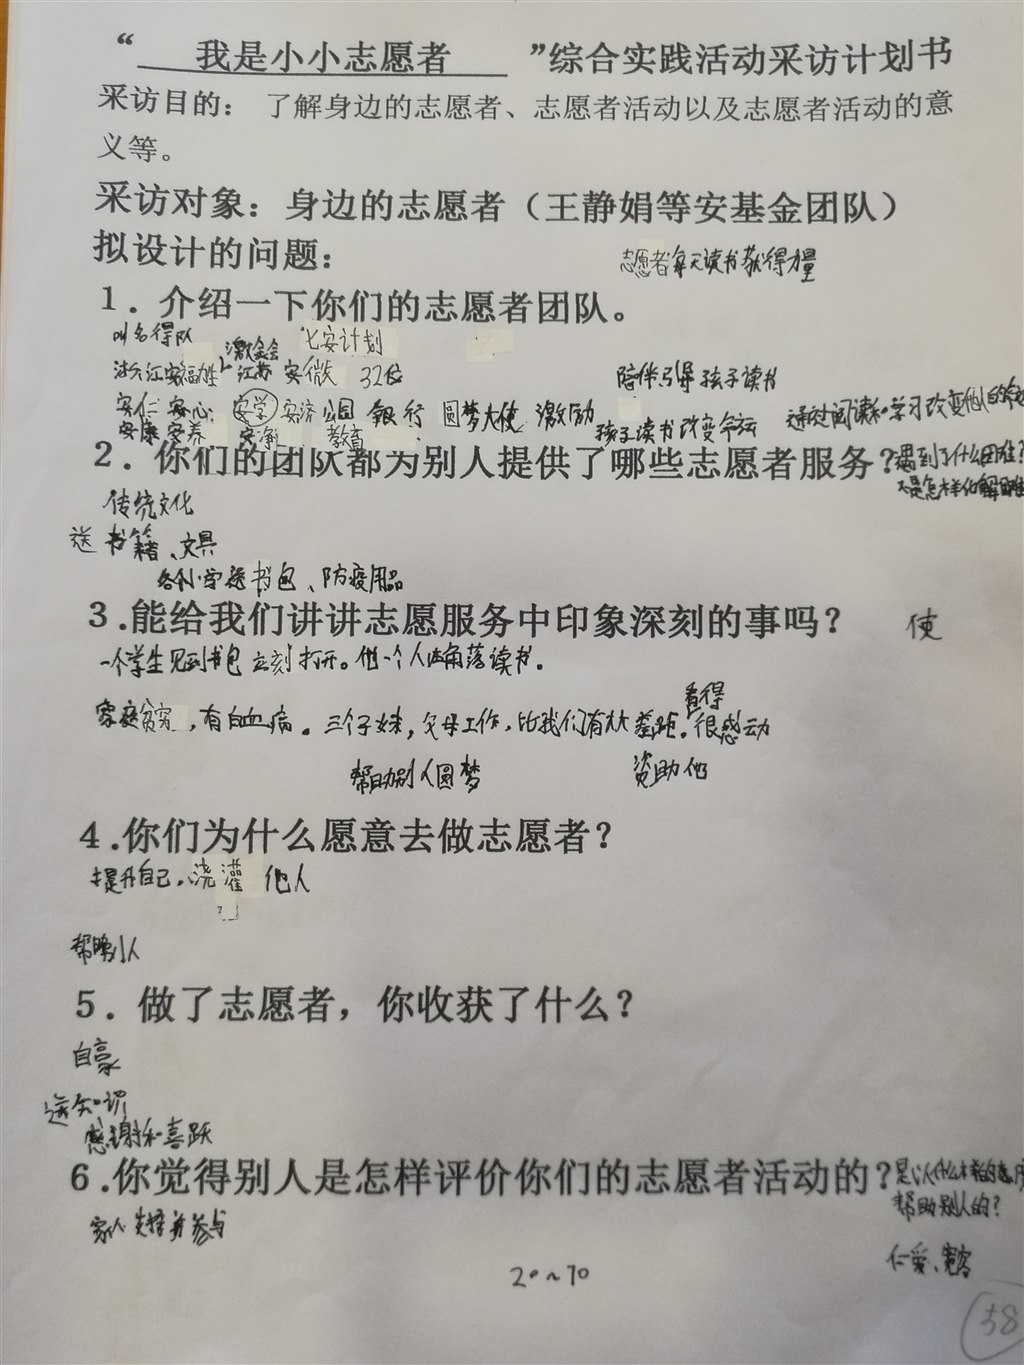 “ 我是小小志愿者 ”综合实践活动采访计划书
采访目的： 了解身边的志愿者、志愿者活动以及志愿者活动的意
义等。
采访对象：身边的志愿者（王静娟等安基金团队）
拟设计的问题：
志愿者每天读书获得力量
1．介绍一下你们的志愿者团队。
七安计划
江苏 安徽 32位
陪伴引导孩子读书
安仁 安心 安学 安济 公园 银行 圆梦大使 激励
孩子读书改变命运
通过阅读和学习改变他人的命运
安康 安养 教育
2．你们的团队都为别人提供了哪些志愿者服务？遇到了什么困难？
是怎样化解
传统文化
送书籍、文具
书包、防疫用品
3.能给我们讲讲志愿服务中印象深刻的事吗？
使
一个学生见到书包立刻打开。他一个人在角落读书。
看得
家庭贫穷，有白血病。三个子妹，父母工作，比我们有太大差距。很感动
帮助别人圆梦 资助他
4.你们为什么愿意去做志愿者？
提升自己。浇灌他人
5．做了志愿者，你收获了什么？
自豪
送知识
感谢和喜跃
6.你觉得别人是怎样评价你们的志愿者活动的？
帮助别人的？
家人支持并参与
仁爱、宽容
20~70
38